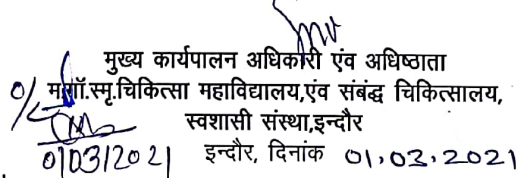 मुख्य कार्यपालन अधिकारी एंव अधिष्ठाता
म.गॉ.स्मृ.चिकित्सा महाविद्यालय,एंव संबंद्ध चिकित्सालय,
स्वशासी संस्था,इन्दौर
0103/2021 इन्दौर, दिनांक 01.03.2021